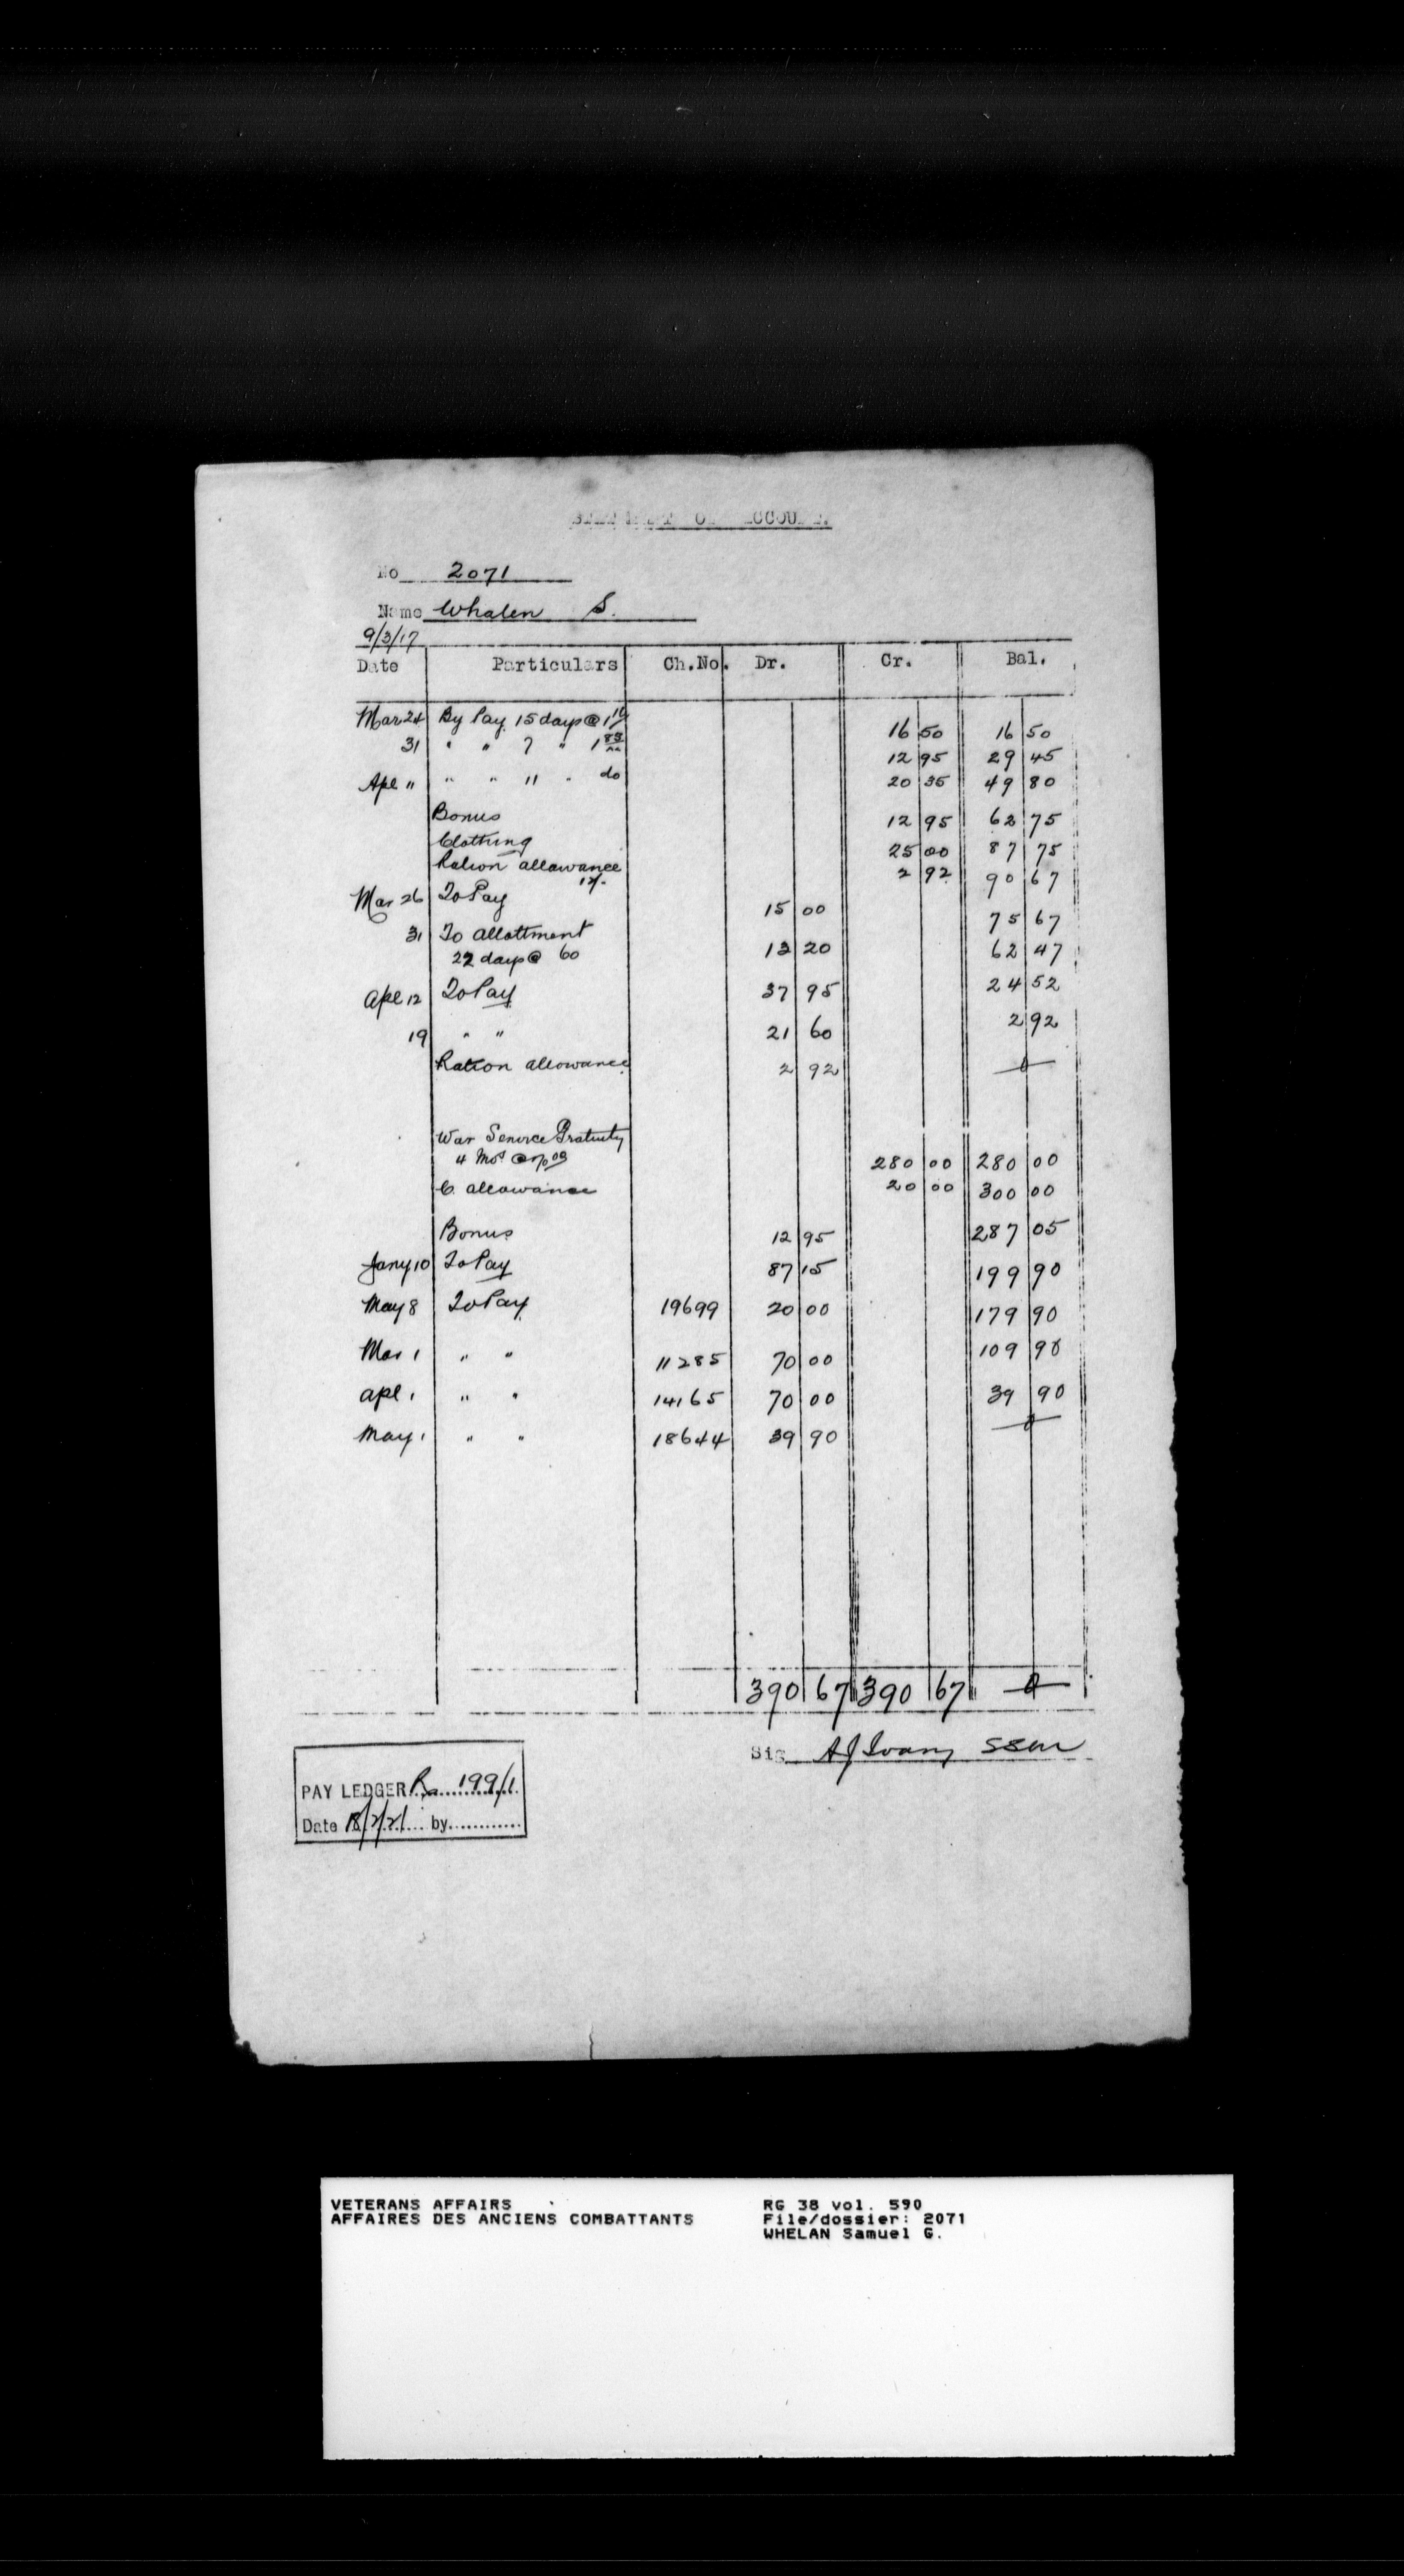 STATEMENT OF ACCOUNT.
No 2071
Name Whalen S.
9/3/17
Date Particulars Ch.No. Dr. Cr. Bal.
Mar 24 By Pay 15 days @ 1 10 16 50 16 50
31 " " 7 " 1 85 12 95 29 45
Apl 11 " " 11 " do 20 35 49 80
Bonus 12 95 62 75
Clothing 25 00 87 75
Ration allowance 2 92 90 67
Mar 26 To Pay 15 00 75 67
31 To Allottment
22 days @ 60 13 20 62 47
Apl 12 To Pay 37 95 24 52
19 " " 21 60 2 92
Ration Allowance 2 92 0
War Service Gratuity
4 Mos @ 70 00 280 00 280 00
C. allowance 20 00 300 00
Bonus 12 95 287 05
Jany 10 To Pay 87 15 199 90
May 8 To Pay 19699 20 00 179 90
Mar 1 " " 11285 70 00 109 90
Apl 1 " " 14165 70 00 39 90
May 1 " " 18644 39 90 0
390 67 390 67 0
Sig
PAY LEDGER 199/1
Date 18/2/21 by
VETERANS AFFAIRS RG 38 vol. 590
AFFAIRES DES ANCIENS COMBATTANTS File/dossier: 2071
WHELAN Samuel G.